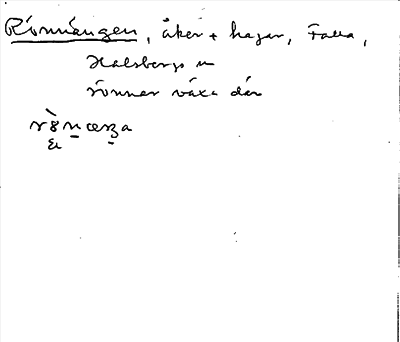 Rönnängen, åker + hagar, Falla,
Halsbergs sn
rönnar växa där